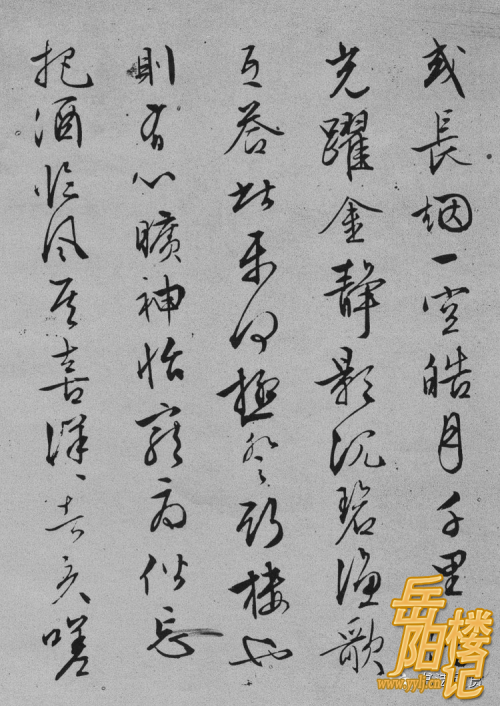 或長烟一空皓月千里
光躍金靜影沉碧漁歌
互答此樂何極登斯樓也
則有心曠神怡寵辱偕忘
把酒臨風其喜洋〻者矣嗟
岳阳楼记
www.yylj.cn